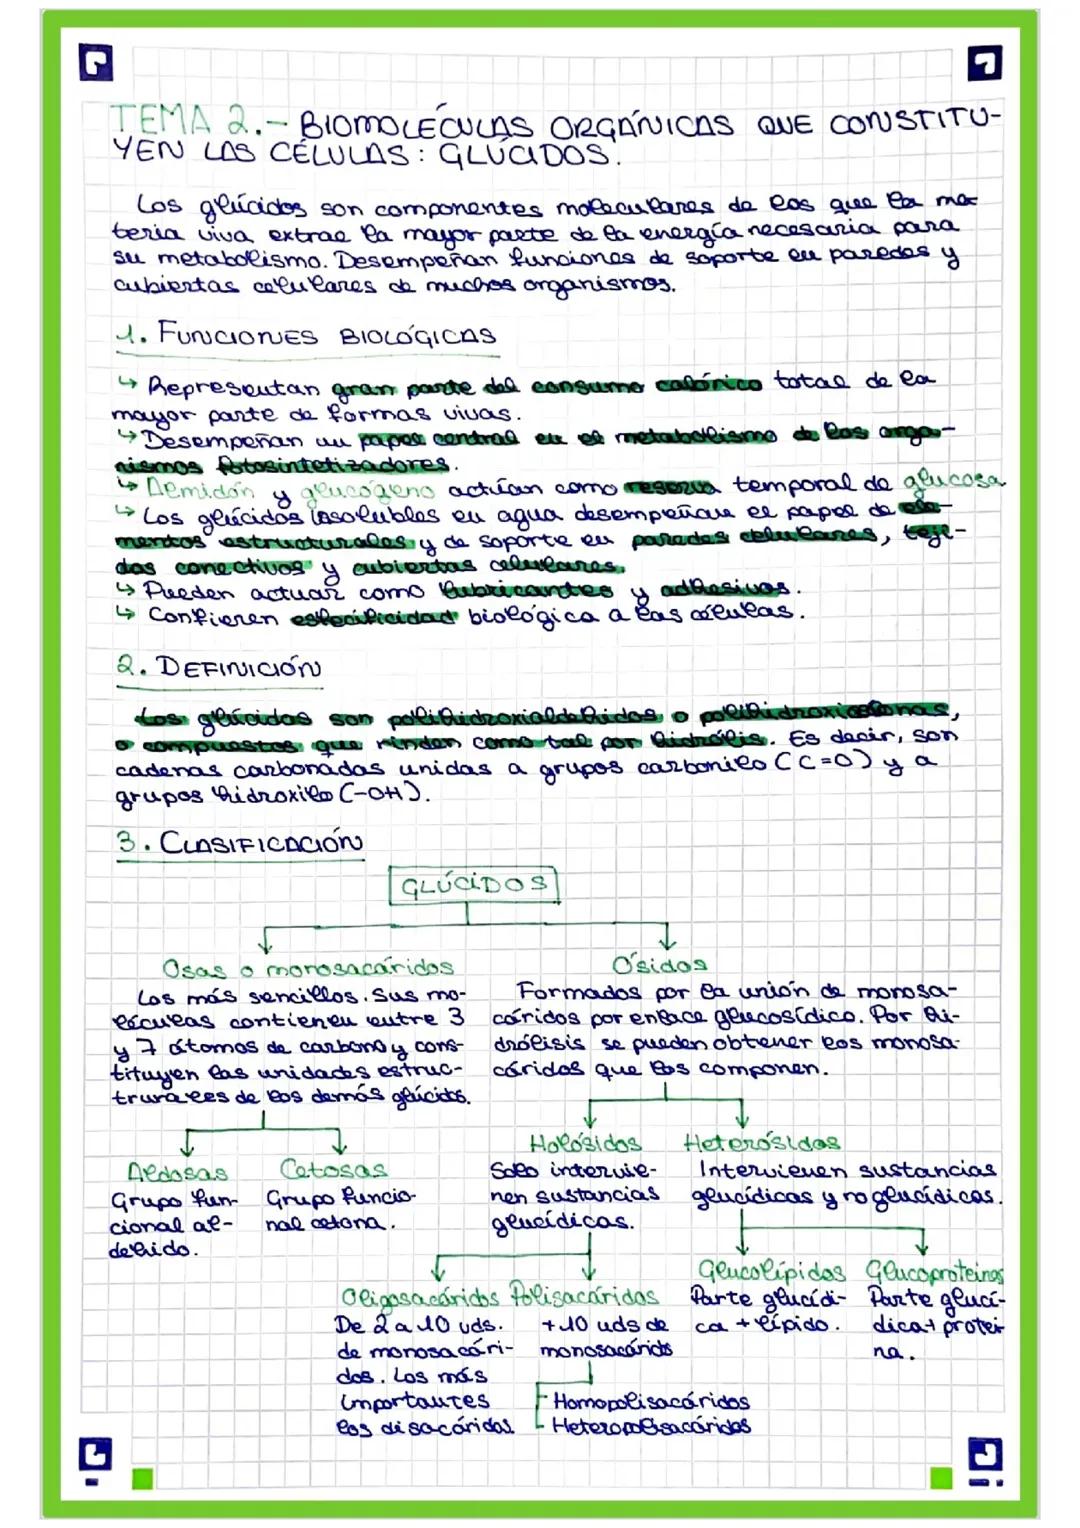 TEMA 2.- BIOMOLÉCULAS ORGÁNICAS QUE CONSTITU-
YEN LAS CÉLULAS: GLÚCIDOS.
Los glúcidos son componentes moleculares de los que la ma-
teria viva extrae la mayor parte de la energía necesaria para
su metabolismo. Desempeñan funciones de soporte en paredes y
cubiertas celulares de muchos organismos.
1. FUNCIONES BIOLÓGICAS
↳ Representan gran parte del consumo calórico total de la
mayor parte de formas vivas.
↳ Desempeñan un papel central en el metabolismo de los orga-
nismos fotosintetizadores.
↳ Almidón y glucógeno actúan como reserva temporal de glucosa
↳ Los glúcidos insolubles en agua desempeñan el papel de ele-
mentos estructurales y de soporte en paredes celulares, teji-
dos conectivos y cubiertas celulares.
↳ Pueden actuar como lubricantes y adhesivos.
↳ Confieren especificidad biológica a las células.
2. DEFINICIÓN
Los glúcidos son polihidroxialdehidos o polihidroxicetonas,
o compuestos que rinden como tal por hidrólis. Es decir, son
cadenas carbonadas unidas a grupos carbonilo (C=O) y a
grupos hidroxilo (-OH).
3. CLASIFICACIÓN
GLÚCIDOS
Osas o monosacáridos
Los más sencillos. Sus mo-
léculas contienen entre 3
y 7 átomos de carbono y cons-
tituyen las unidades estruc-
trurales de los demás glúcidos.
Ósidos
Formados por la unión de monosa-
cáridos por enlace glucosídico. Por hi-
drólisis se pueden obtener los monosa-
cáridos que los componen.
Aldosas
Grupo fun-
cional al-
dehido.
Cetosas
Grupo funcio-
nal cetona.
Holósidos
Solo intervie-
nen sustancias
glucídicas.
Heterósidos
Intervienen sustancias
glucídicas y no glucídicas.
Oligosacáridos
De 2 a 10 uds.
de monosacári-
dos. Los más
importantes
los disacáridos
Polisacáridos
+10 uds de
monosacáridos
Homopolisacáridos
Heteropolisacáridos
Glucolípidos
Parte glucídi-
ca + lípido.
Glucoproteinas
Parte glucí-
dica + protei
na.